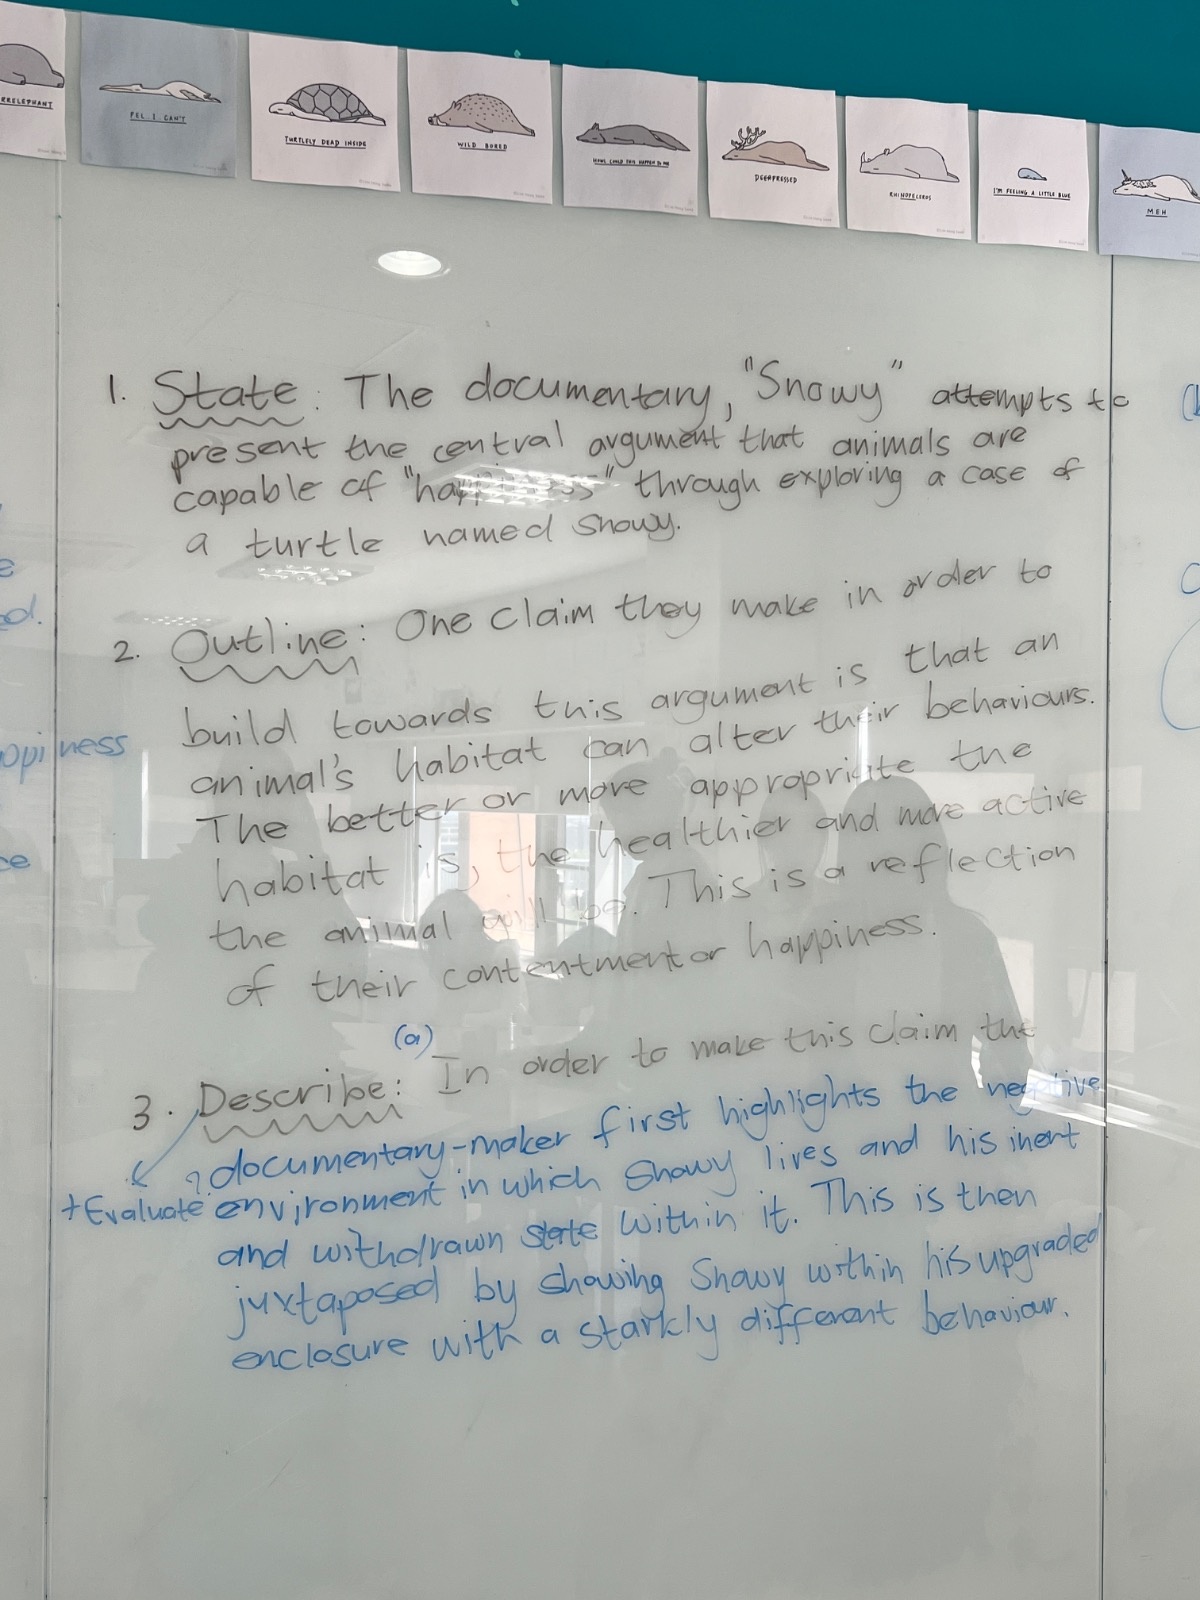 EEL I CAN'T
TURTLELY DEAD INSIDE
WILD BORED
HOWL COULD THIS HAPPEN TO ME
DEERPRESSED
RHINOPELEROS
I'M FEELING A LITTLE BLUE
MEH
1. State: The documentary, "Snowy" attempts to
present the central argument that animals are
capable of "happiness" through exploring a case of
a turtle named Snowy.
2. Outline: One claim they make in order to
build towards this argument is that an
animal's habitat can alter their behaviours.
The better or more appropriate the
habitat is, the healthier and more active
the animal will be. This is a reflection
of their contentment or happiness.
(a)
3. Describe: In order to make this claim the
documentary-maker first highlights the negative
+Evaluate environment in which Snowy lives and his inert
and withdrawn state within it. This is then
juxtaposed by showing Snowy within his upgraded
enclosure with a starkly different behaviour.